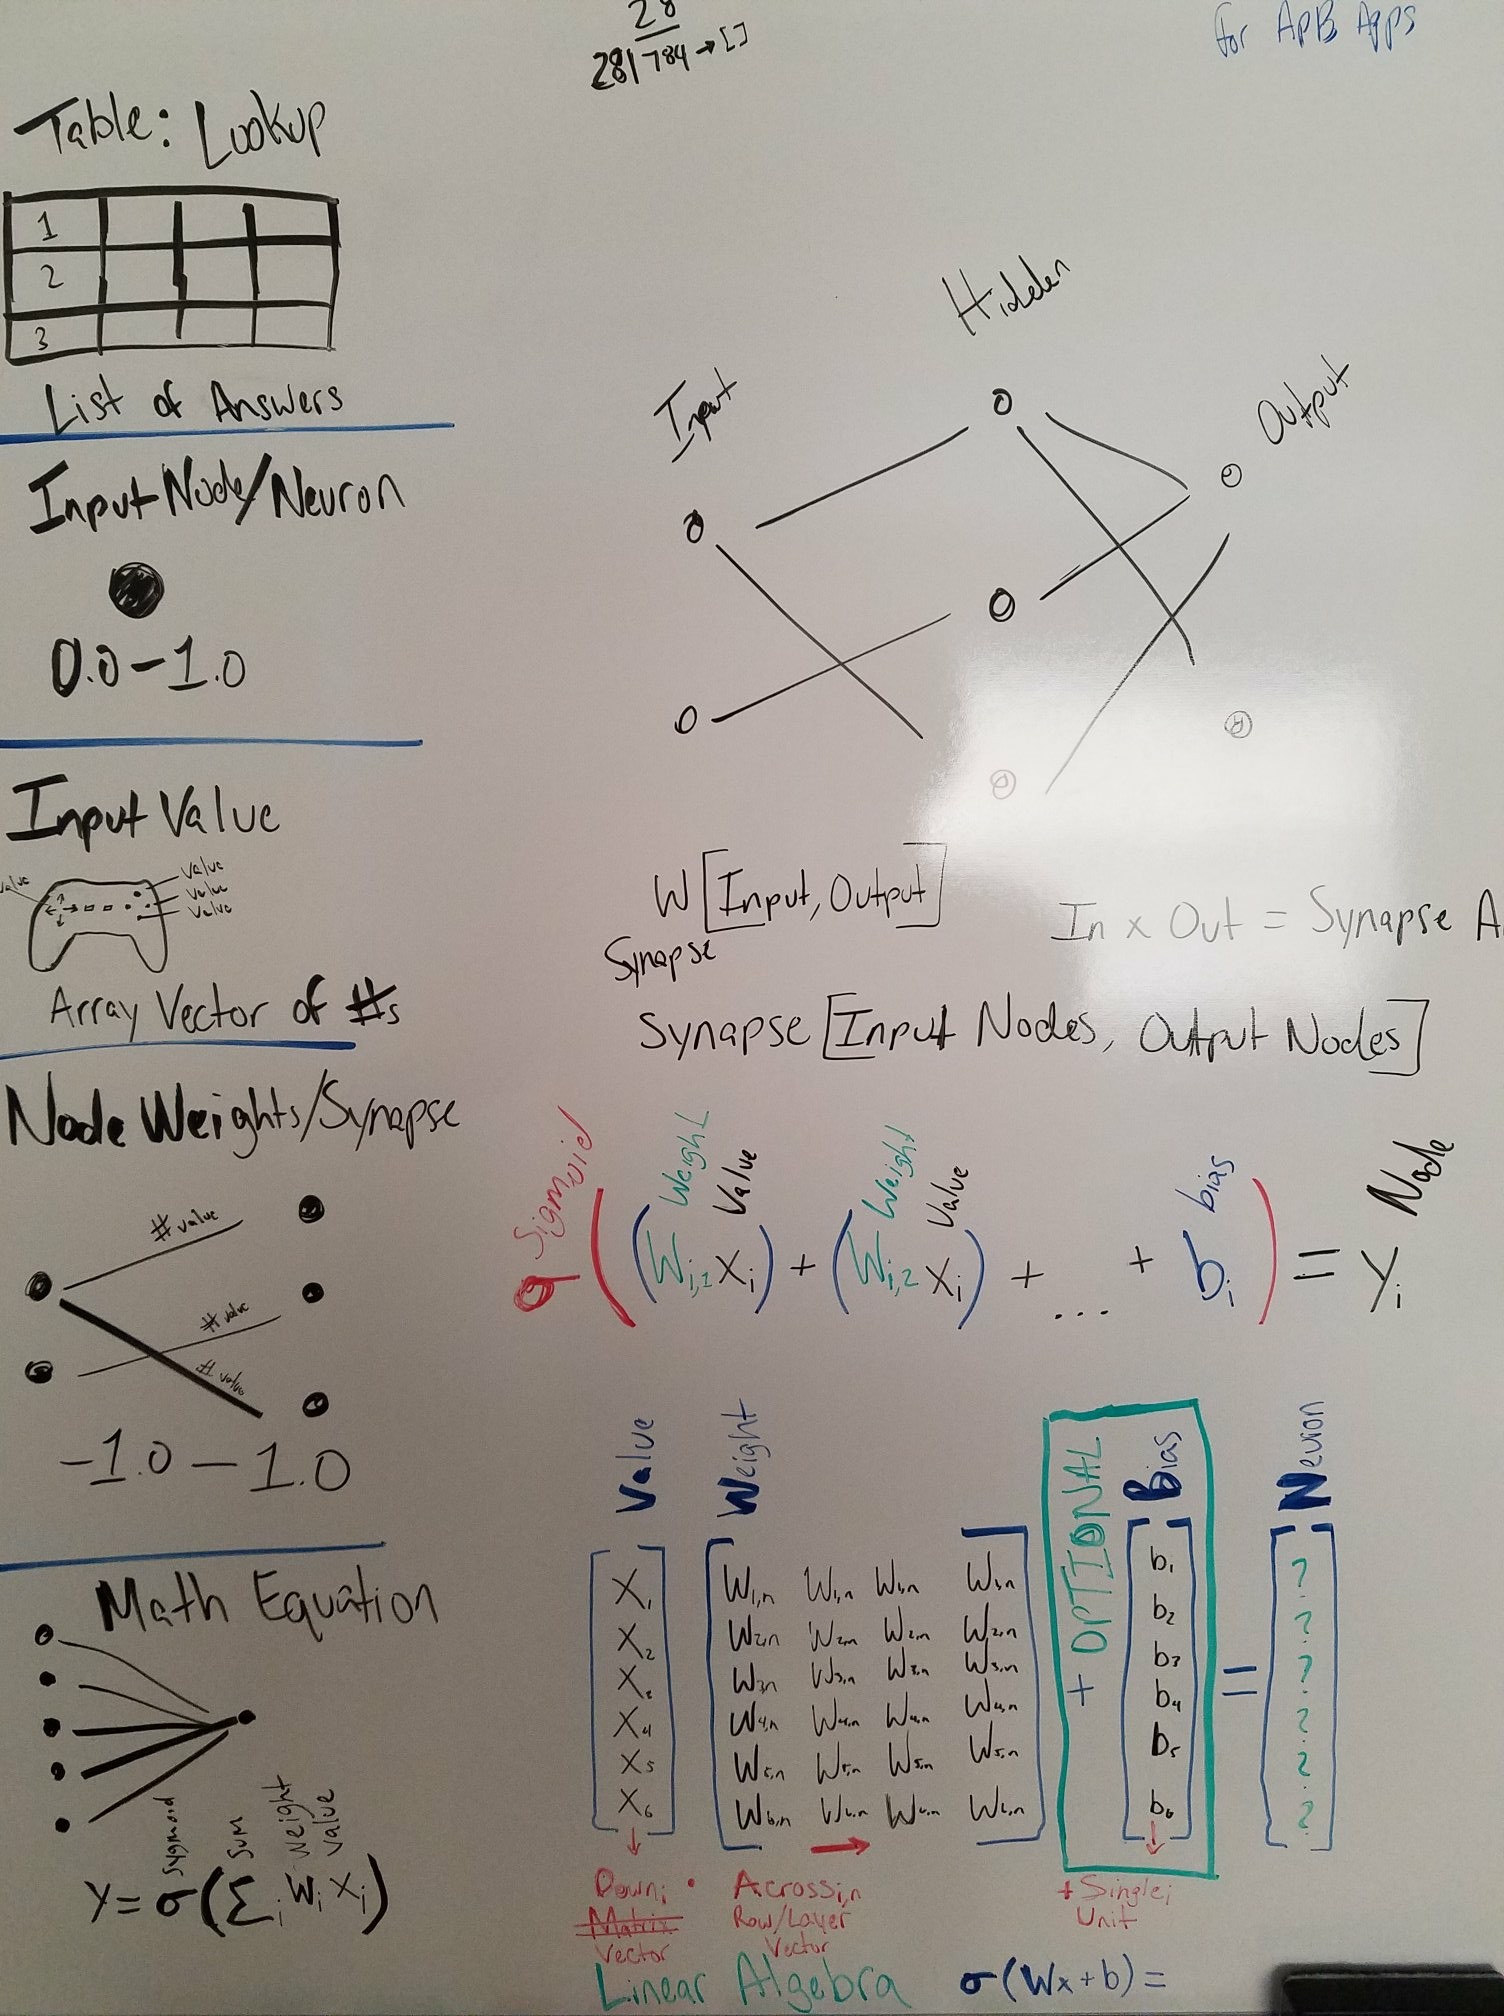 28
28|784→[]
for APB Apps
Table: Lookup
1
2
3
List of Answers
Input Node/Neuron
0.0–1.0
Input Value
Value
Value
Value
Value
Array Vector of #s
Node Weights/Synapse
# value
# value
# value
-1.0 – 1.0
Math Equation
Sygmoid
Sum
Weight
Value
Y = σ(Σi Wi Xi)
Hidden
Input
Output
W[Input, Output]
Synapse
In x Out = Synapse
Synapse [Input Nodes, Output Nodes]
Sigmoid
Weight
Value
Weight
Value
bias
Node
σ((Wi,1 Xi) + (Wi,2 Xi) + ... + bi) = Yi
Value
Weight
+ OPTIONAL
Bias
Neuron
X1 W1,n W1,n W1,n W1,n b1 ?
X2 W2,n W2,n W2,n W2,n b2 ?
X3 W3,n W3,n W3,n W3,n b3 = ?
X4 W4,n W4,n W4,n W4,n b4 ?
X5 W5,n W5,n W5,n W5,n b5 ?
X6 W6,n W6,n W6,n W6,n b6 ?
Down i • Across i,n + Single i
Matrix Row/Layer Unit
Vector Vector
Linear Algebra σ(Wx+b) =